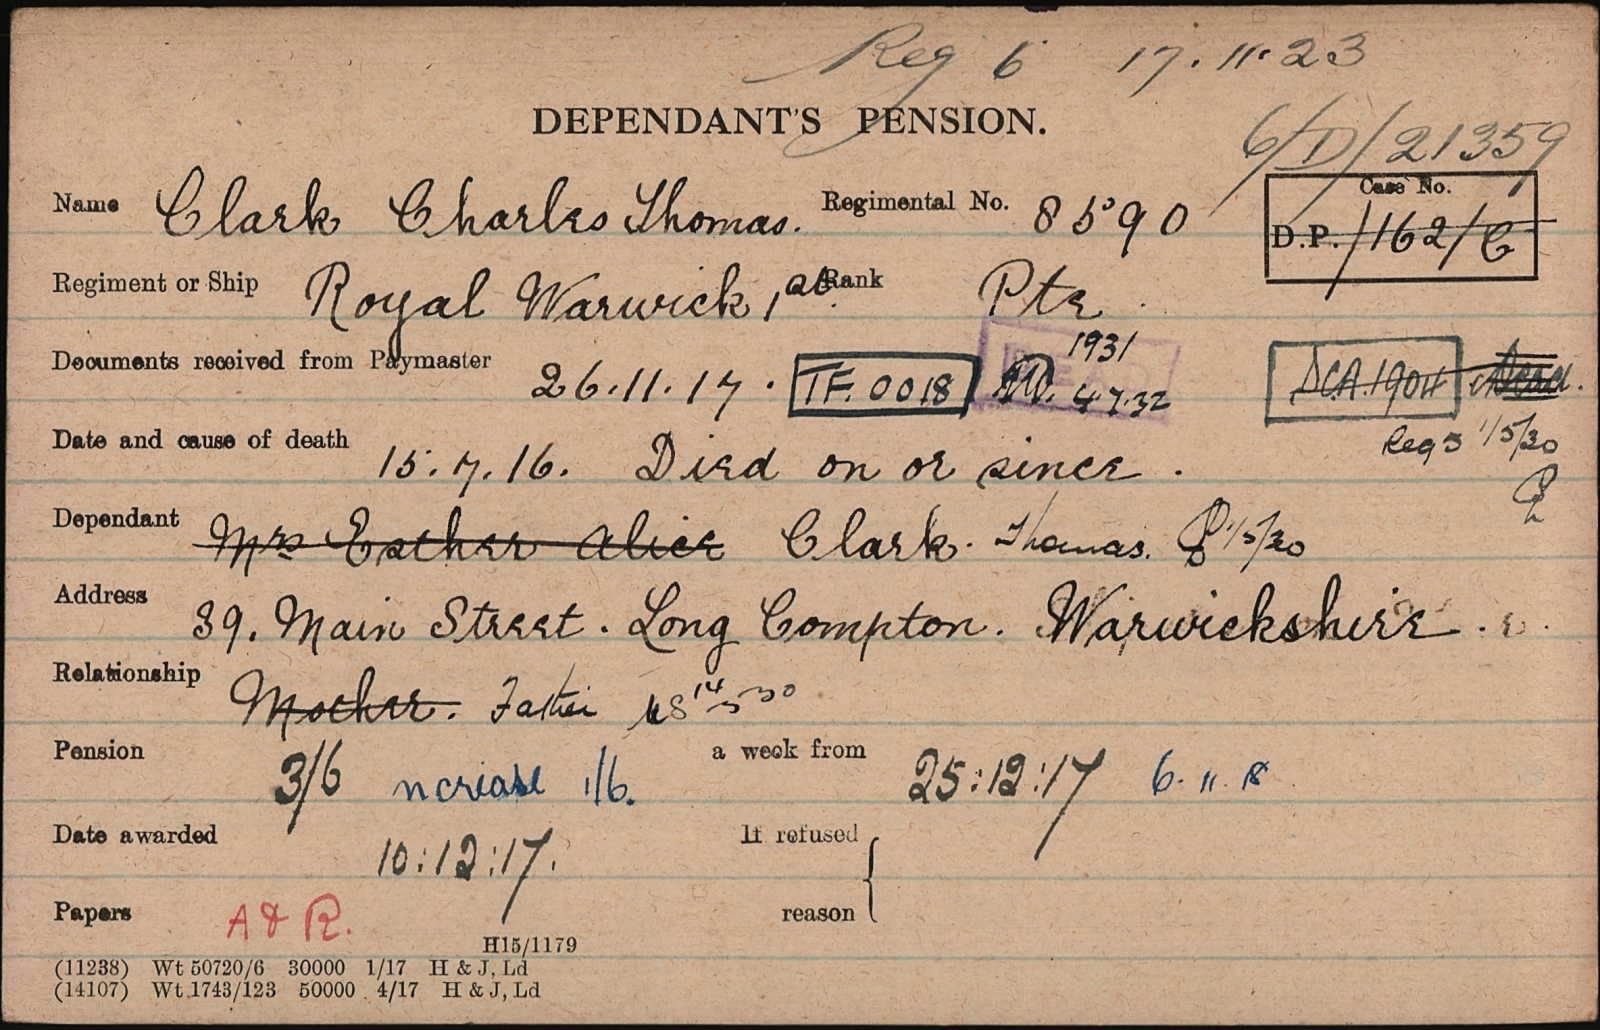 Reg 6 17.11.23
DEPENDANT'S PENSION.
6/D/21359
Name Clark Charles Thomas. Regimental No. 8590
Case No.
D.P./162/C
Regiment or Ship Royal Warwick, 1st Rank Pte
Documents received from Paymaster 26.11.17. TF.0018 1931 4.7.32
DEAD
DCA.1904 Dead.
Reg 5 1/5/30
Date and cause of death 15.7.16. Died on or since.
Dependant Mrs Esther Alice Clark. Thomas. 1/5/30
Address 39. Main Street. Long Compton. Warwickshire.
Relationship Mother. Father 14 5 30
Pension 3/6 ncrease 1/6. a week from 25:12:17 6.11.18
Date awarded 10:12:17. If refused
Papers A & R. reason
H15/1179
(11238) Wt 50720/6 30000 1/17 H & J, Ld
(14107) Wt 1743/123 50000 4/17 H & J, Ld